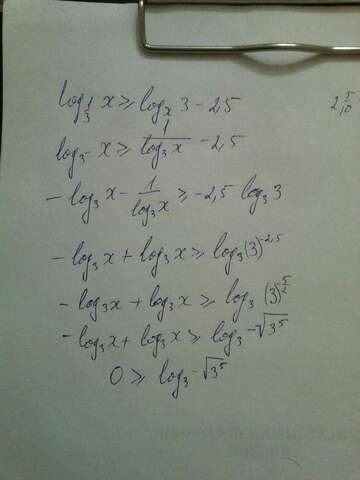 log_{1/3} x ≥ log_x 3 - 2,5
log_{3^-} x ≥ \frac{1}{log_3 x} - 2,5
- log_3 x - \frac{1}{log_3 x} ≥ -2,5 log_3 3
- log_3 x + log_3 x ≥ log_3 (3)^{-2,5}
- log_3 x + log_3 x ≥ log_3 (3)^{\frac{5}{2}}
- log_3 x + log_3 x ≥ log_3 -\sqrt{3^5}
0 ≥ log_3 -\sqrt{3^5}